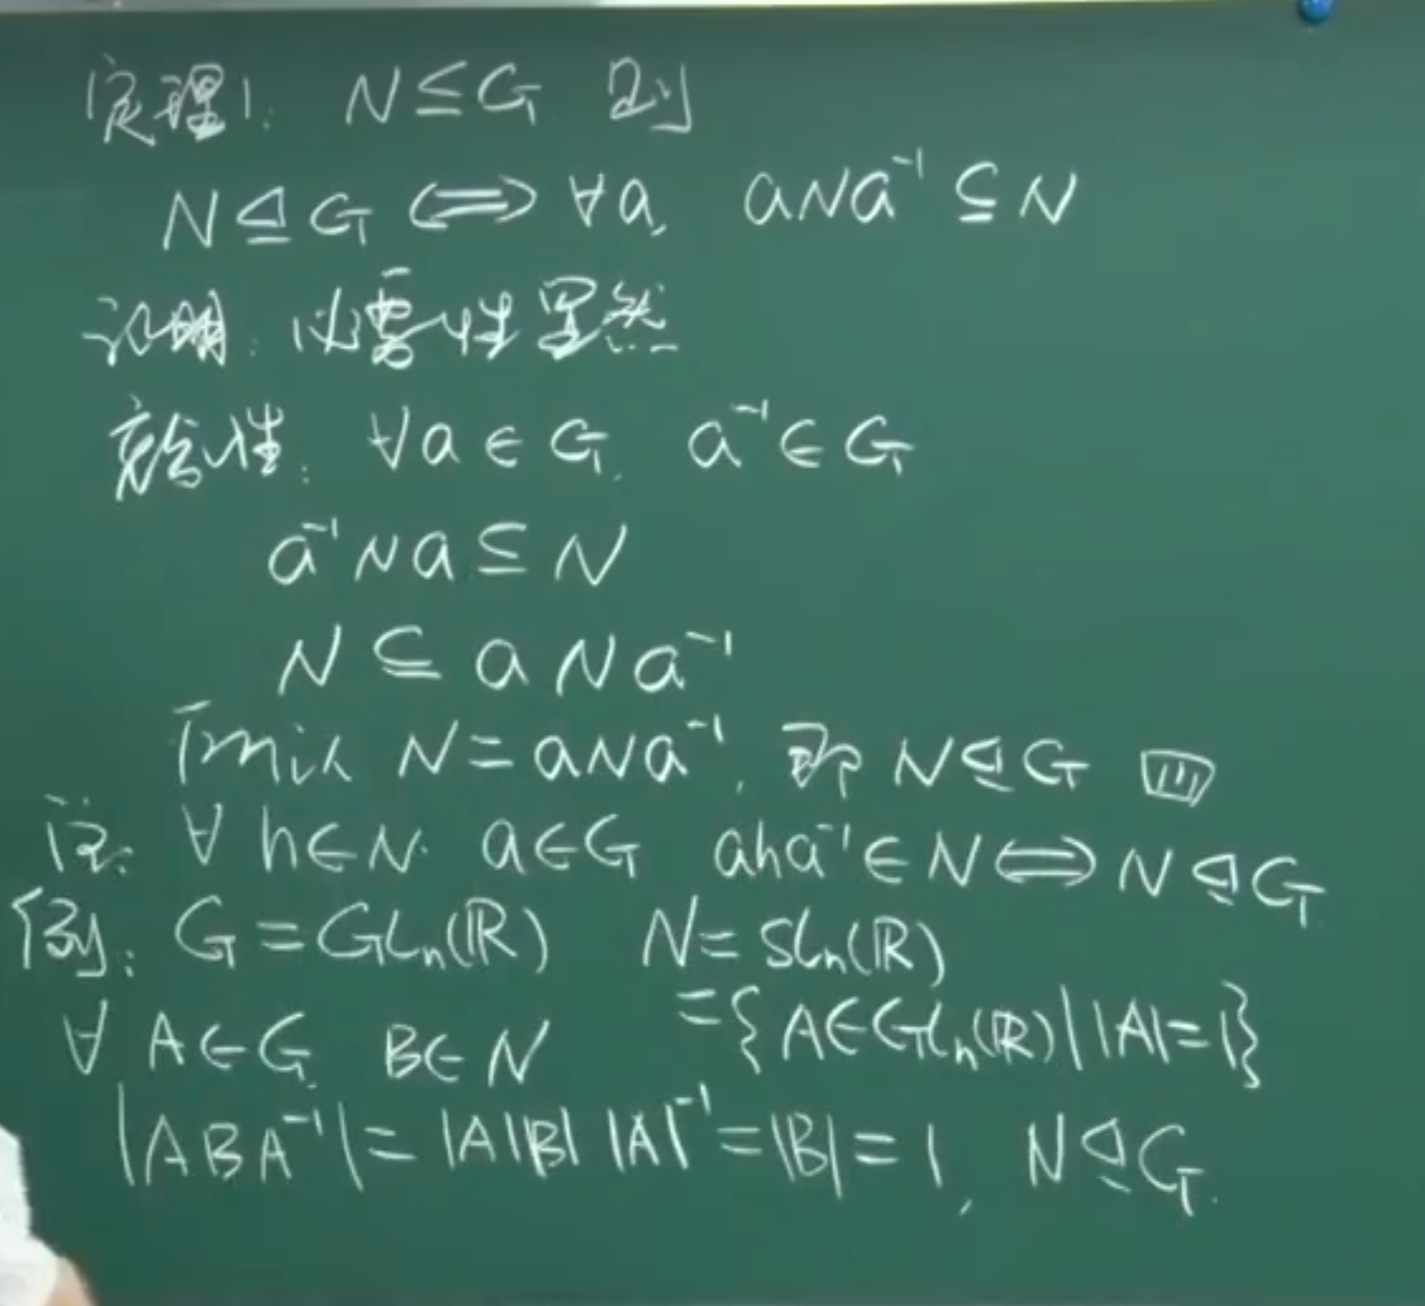 定理1. N≤G 则
N⊴G ⟺ ∀a, aNa⁻¹⊆N
证明: 必要性显然
充分性: ∀a∈G, a⁻¹∈G
a⁻¹Na⊆N
N⊆aNa⁻¹
因此 N=aNa⁻¹, 即 N⊴G
注: ∀h∈N. a∈G aha⁻¹∈N⟺N⊴G
例: G=GLₙ(ℝ) N=SLₙ(ℝ)
={A∈GLₙ(ℝ)||A|=1}
∀ A∈G, B∈N
|ABA⁻¹|=|A||B||A|⁻¹=|B|=1, N⊴G.